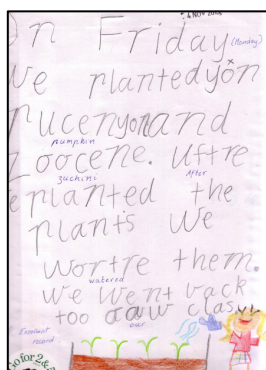 4 NOV
on Friday (Monday)
we plantedyon
Pucenyonand
pumpkin
zoocene. Uftre
zuchini After
planted the
plants we
wortre them.
watered
we went back
too aaw clas
our
Excellent
record
Go for 2&5